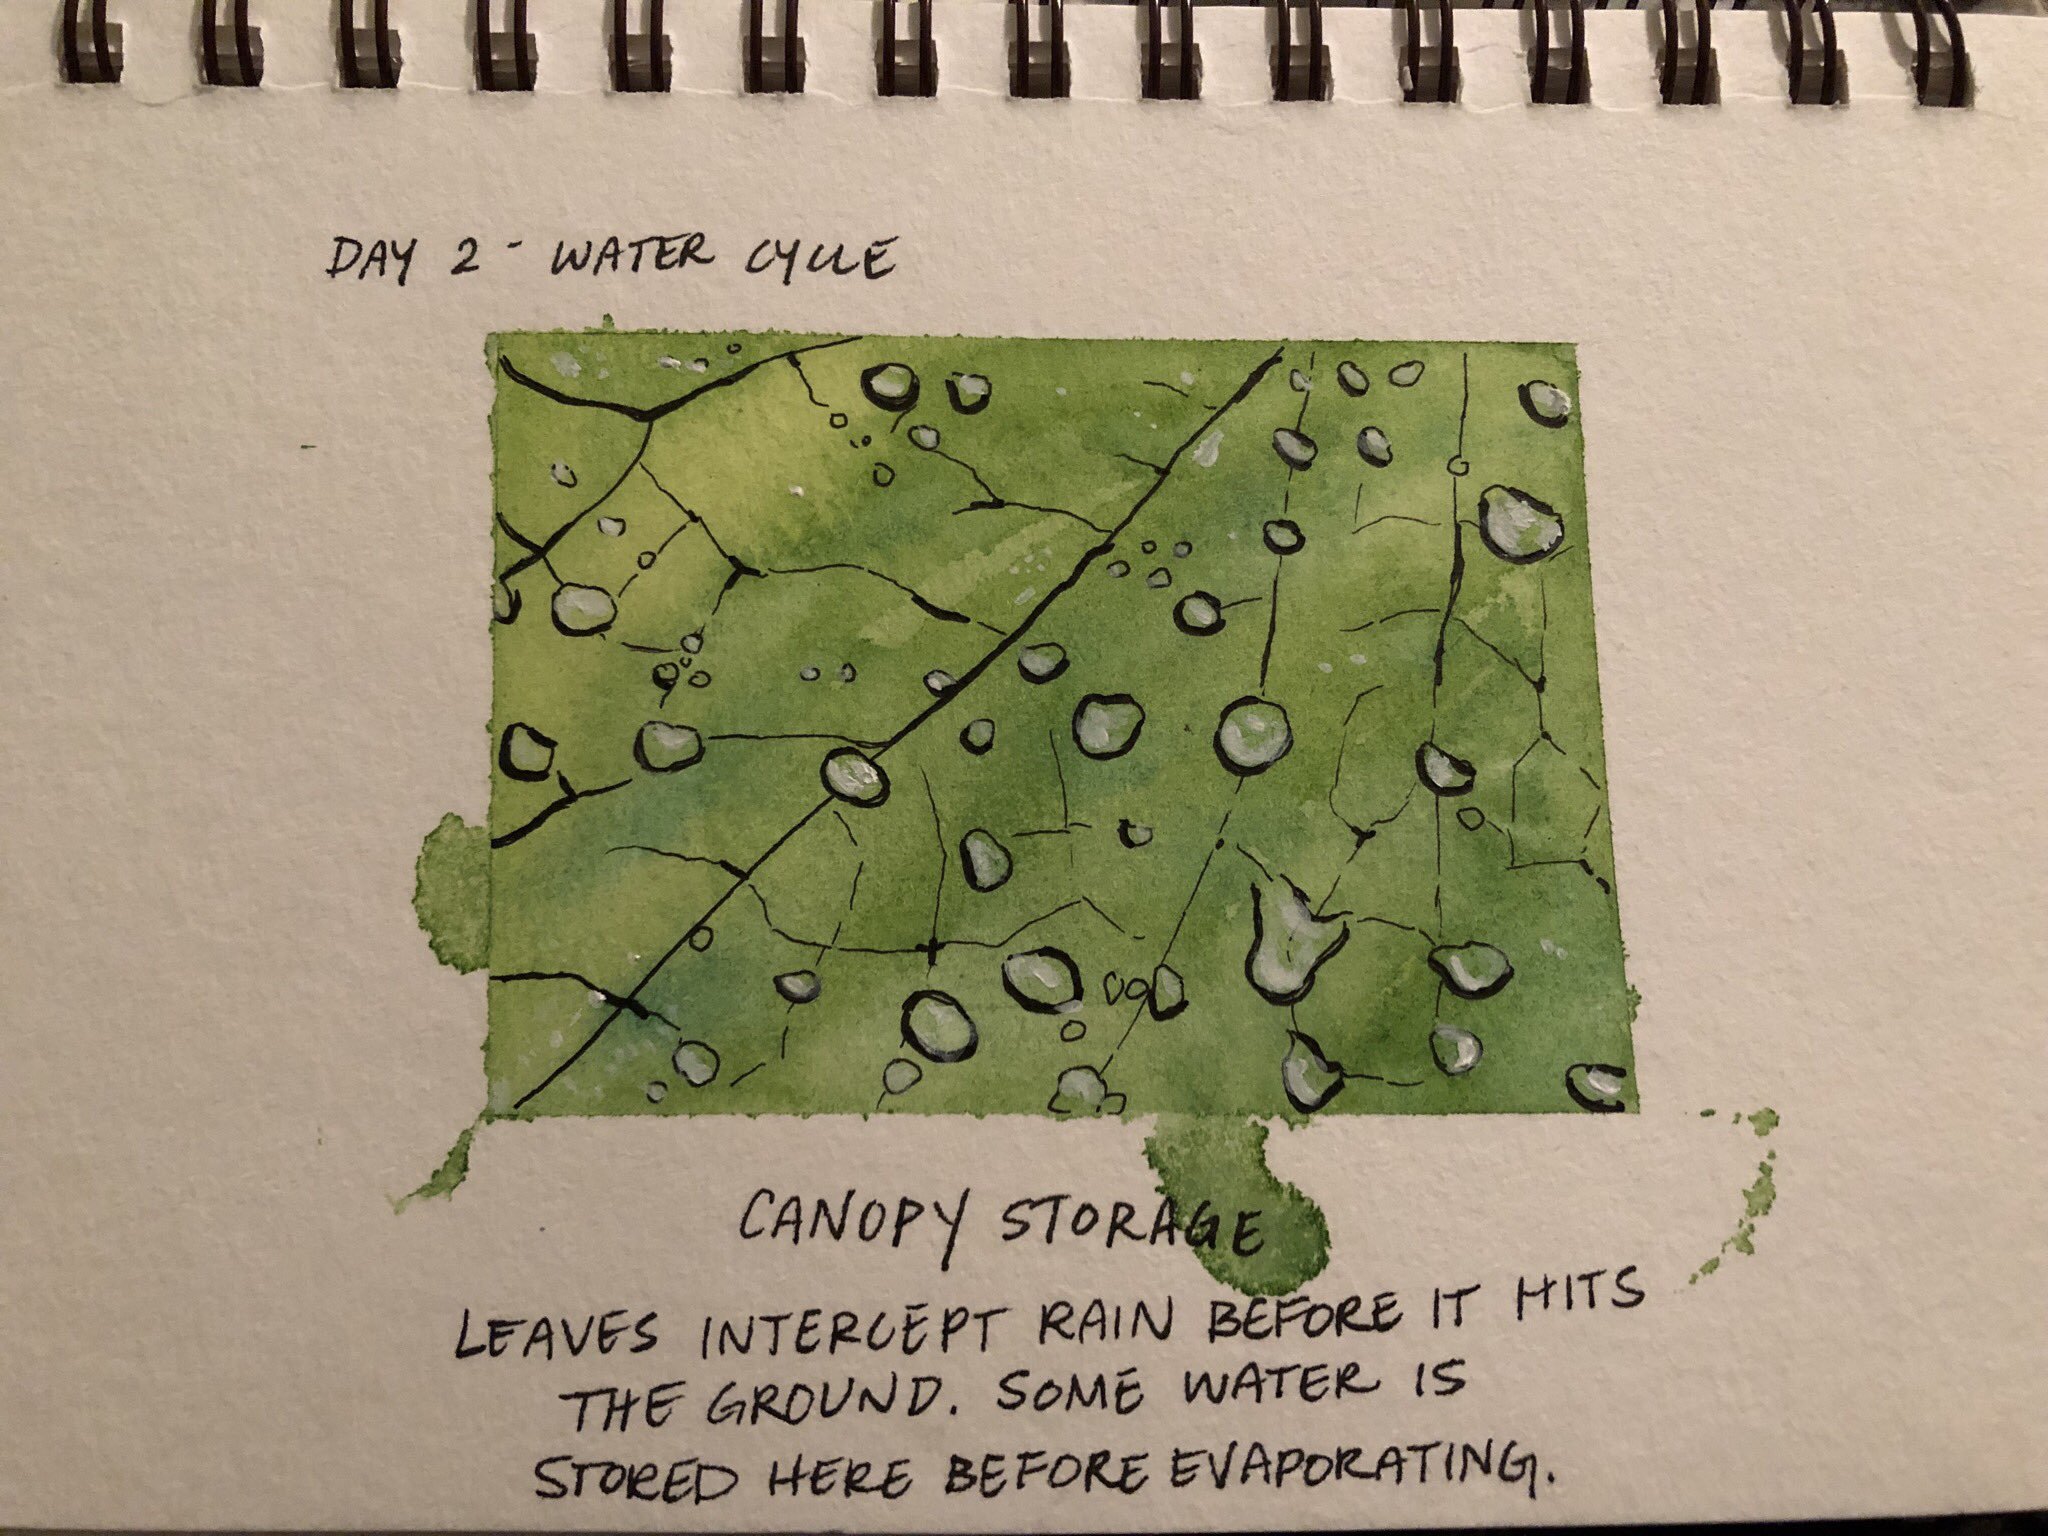 DAY 2 - WATER CYCLE
CANOPY STORAGE
LEAVES INTERCEPT RAIN BEFORE IT HITS
THE GROUND. SOME WATER IS
STORED HERE BEFORE EVAPORATING.